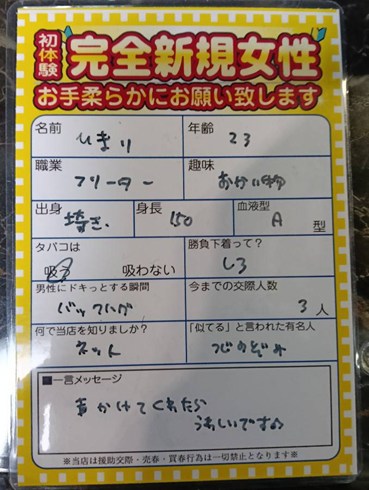 初体験 完全新規女性
お手柔らかにお願い致します
名前 ひまり 年齢 23
職業 フリーター 趣味 おかい物
出身 埼玉 身長 150 血液型 A 型
タバコは 吸う 吸わない 勝負下着って? しろ
男性にドキっとする瞬間 バックハグ 今までの交際人数 3 人
何で当店を知りましたか? ネット 「似てる」と言われた有名人 つじのぞみ
■一言メッセージ
声かけてくれたら
うれしいです♪
※当店は援助交際・売春・買春行為は一切禁止となります※